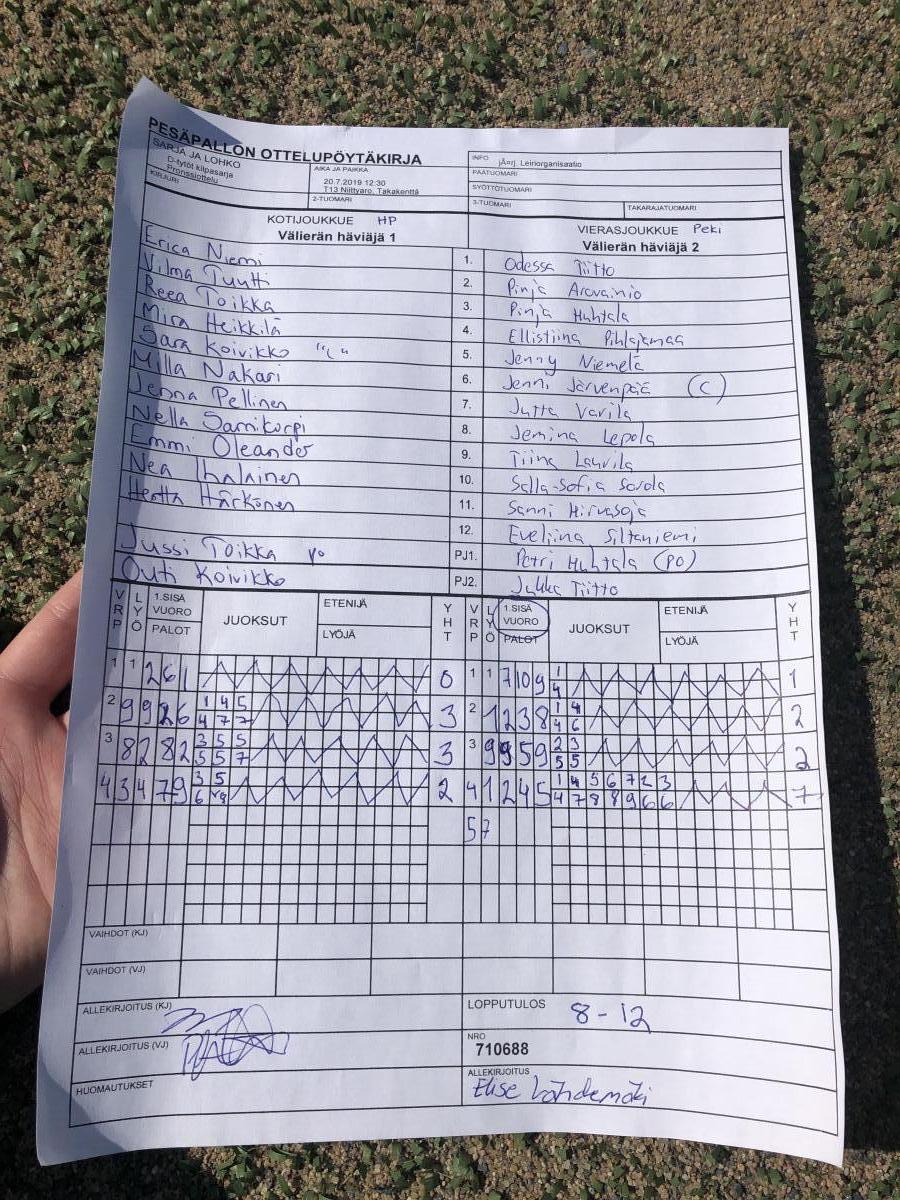 PESÄPALLON OTTELUPÖYTÄKIRJA
SARJA JA LOHKO
D-tytöt kilpasarja
Pronssiottelu
AIKA JA PAIKKA
20.7.2019 12:30
T13 Niittyaro, Takakenttä
KIRJURI
2-TUOMARI
INFO jÄ¤rj. Leiriorganisaatio
PÄÄTUOMARI
SYÖTTÖTUOMARI
3-TUOMARI
TAKARAJATUOMARI
KOTIJOUKKUE HP
Välierän häviäjä 1
VIERASJOUKKUE Peki
Välierän häviäjä 2
Erica Niemi 1. Odessa Tiitto
Vilma Tuutti 2. Pinja Arovainio
Reea Toikka 3. Pinja Huhtala
Mira Heikkilä 4. Ellistiina Pihlajamaa
Sara Koivikko "C" 5. Jenny Niemelä
Milla Nakari 6. Jenni Järvenpää (C)
Jenna Pellinen 7. Jutta Varila
Nella Samikorpi 8. Jemina Lepola
Emmi Oleander 9. Tiina Laurila
Nea Ihalainen 10. Salla-Sofia Sorola
Hertta Härkönen 11. Sanni Hirvasoja
12. Eveliina Siltaniemi
Jussi Toikka PJ1. Petri Huhtala (PO)
Outi Koivikko PJ2. Jukka Tiitto
VRP LYÖ 1.SISÄ VUORO PALOT JUOKSUT ETENIJÄ LYÖJÄ YHT
VRP LYÖ 1.SISÄ VUORO PALOT JUOKSUT ETENIJÄ LYÖJÄ YHT
1 1 2 6 1 0 1 1 7 10 9 1 1
4
2 9 9 2 6 1 4 5 3 2 1 2 3 8 1 4 2
4 7 7 4 6
3 8 2 8 2 3 5 5 3 3 9 9 5 9 2 3 2
5 5 7 5 5
4 3 4 7 9 3 5 2 4 1 2 4 5 1 4 5 6 7 2 3 7
6 4 7 8 8 9 6 6
5 7
VAIHDOT (KJ)
VAIHDOT (VJ)
ALLEKIRJOITUS (KJ)
LOPPUTULOS 8-12
ALLEKIRJOITUS (VJ)
NRO
710688
HUOMAUTUKSET
ALLEKIRJOITUS
Elise Lähdemäki